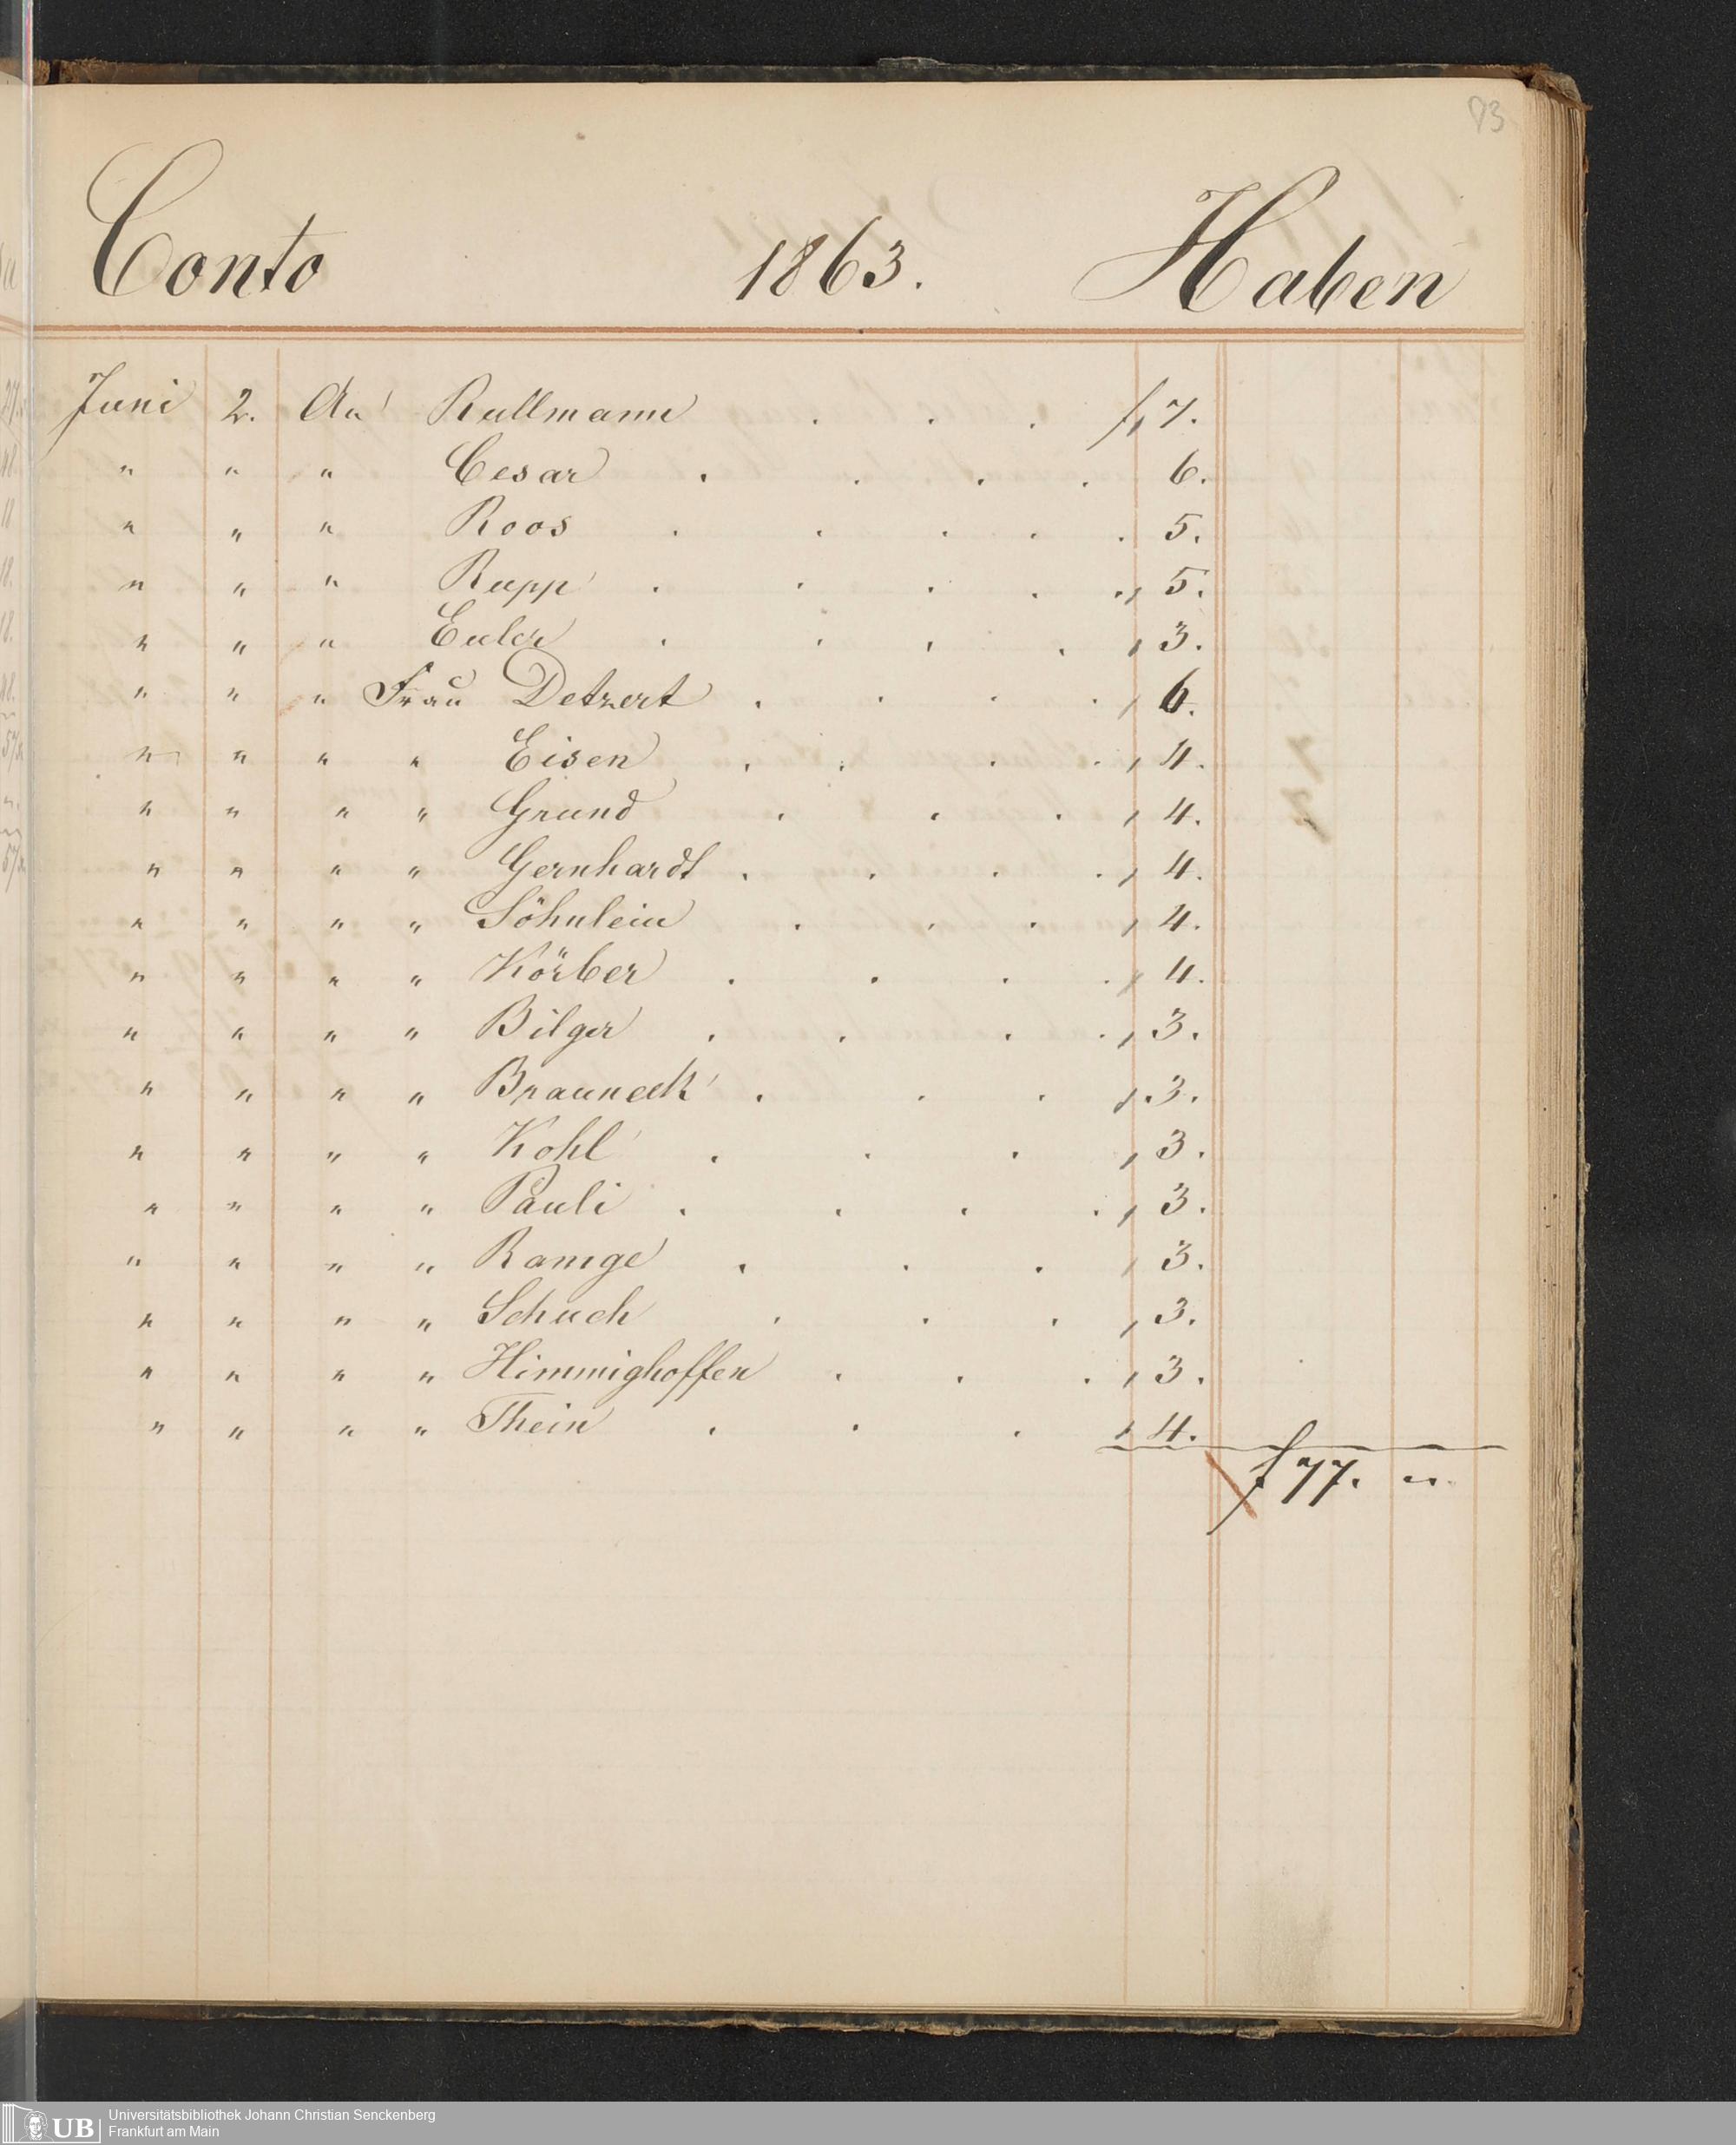 93
Conto 1863. Haben
Juni 2. An Rullmann . . . f, 7.
" " " Cesar . . . . 6.
" " " Roos . . . . . 5.
" " " Rupp . . . . ., 5.
" " " Euler . . . . , 3.
" " " Frau Detzert . . . . , 6.
" " " " Eisen . . . . , 4.
" " " " Grund . . . , 4.
" " " " Gernhardt . . . . , 4.
" " " " Söhnlein . . . , 4.
" " " " Körber . . . . , 4.
" " " " Bilger . . . . , 3.
" " " " Brauneck . . . , 3.
" " " " Kohl . . . , 3.
" " " " Pauli . . . . , 3.
" " " " Ramge . . . , 3.
" " " " Schuch . . . , 3.
" " " " Himmighoffen . . . , 3.
" " " " Thein . . . , 4.
f 77. "
UB Universitätsbibliothek Johann Christian Senckenberg
Frankfurt am Main